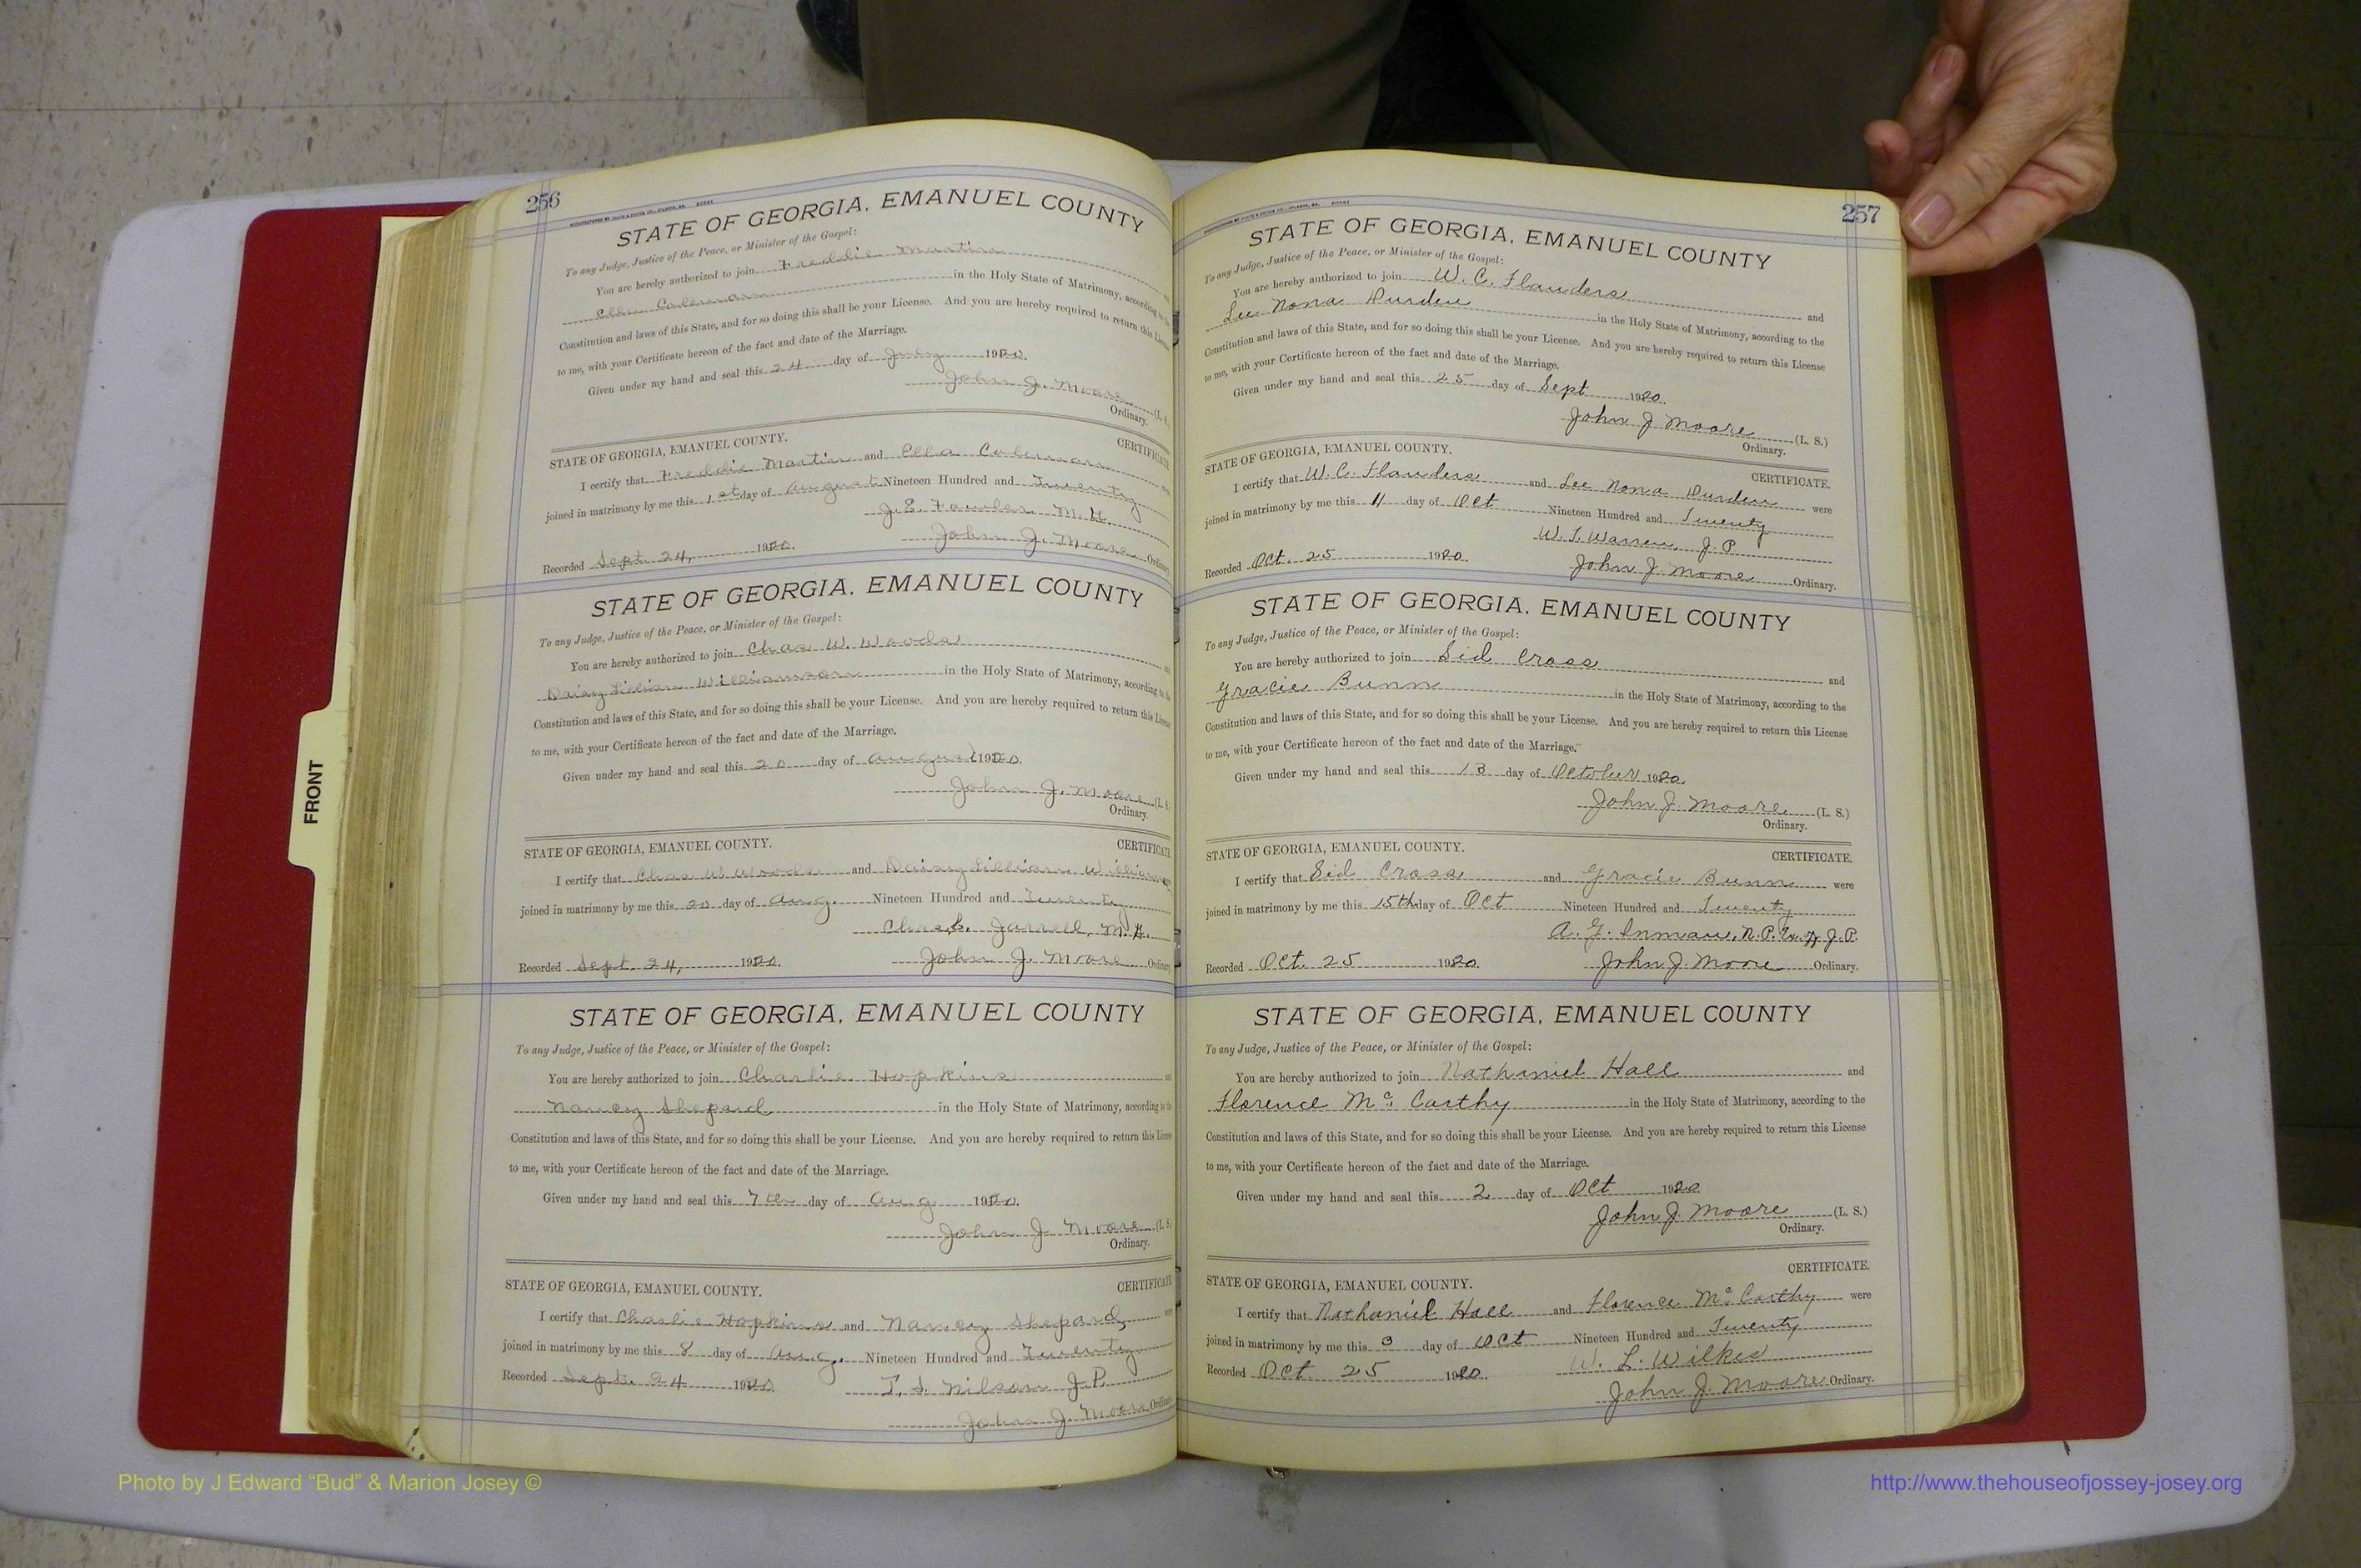 256
STATE OF GEORGIA, EMANUEL COUNTY
To any Judge, Justice of the Peace, or Minister of the Gospel:
You are hereby authorized to join Freddie Martin
Ella Coleman in the Holy State of Matrimony, according to the
Constitution and laws of this State, and for so doing this shall be your License. And you are hereby required to return this License
to me, with your Certificate hereon of the fact and date of the Marriage.
Given under my hand and seal this 24 day of July 1920.
John J. Moore (L. S.
Ordinary.
STATE OF GEORGIA, EMANUEL COUNTY. CERTIFICATE
I certify that Freddie Martin and Ella Coleman
joined in matrimony by me this 1st day of August Nineteen Hundred and Twenty
J. E. Fowler M. G.
Recorded Sept. 24, 1920. John J. Moore Ordinary
STATE OF GEORGIA, EMANUEL COUNTY
To any Judge, Justice of the Peace, or Minister of the Gospel:
You are hereby authorized to join Chas W. Woods
Daisy Lillian Williamson in the Holy State of Matrimony, according to the
Constitution and laws of this State, and for so doing this shall be your License. And you are hereby required to return this License
to me, with your Certificate hereon of the fact and date of the Marriage.
Given under my hand and seal this 20 day of August 1920.
John J. Moore (L. S
Ordinary.
STATE OF GEORGIA, EMANUEL COUNTY. CERTIFICATE
I certify that Chas W Woods and Daisy Lillian
joined in matrimony by me this 20 day of Aug. Nineteen Hundred and Twenty
Jarrell, M. G.
Recorded Sept. 24, 1920. John J. Moore Ordinary
STATE OF GEORGIA, EMANUEL COUNTY
To any Judge, Justice of the Peace, or Minister of the Gospel:
You are hereby authorized to join Charlie Hopkins
Nancy Shepard in the Holy State of Matrimony, according to the
Constitution and laws of this State, and for so doing this shall be your License. And you are hereby required to return this License
to me, with your Certificate hereon of the fact and date of the Marriage.
Given under my hand and seal this 7th day of Aug 1920.
John J. Moore (L. S
Ordinary.
STATE OF GEORGIA, EMANUEL COUNTY. CERTIFICATE
I certify that Charlie Hopkins and Nancy Shepard,
joined in matrimony by me this 8 day of Aug. Nineteen Hundred and Twenty
Recorded Sept. 24 1920. T. S. Nilson J. P.
John J. Moore Ordinary
257
STATE OF GEORGIA, EMANUEL COUNTY
To any Judge, Justice of the Peace, or Minister of the Gospel:
You are hereby authorized to join W. C. Flanders and
Lee Nona Durden in the Holy State of Matrimony, according to the
Constitution and laws of this State, and for so doing this shall be your License. And you are hereby required to return this License
to me, with your Certificate hereon of the fact and date of the Marriage.
Given under my hand and seal this 25 day of Sept 1920.
John J Moore (L. S.)
Ordinary.
STATE OF GEORGIA, EMANUEL COUNTY. CERTIFICATE.
I certify that W. C. Flanders and Lee Nona Durden were
joined in matrimony by me this 11 day of Oct Nineteen Hundred and Twenty
Warren, J. P.
Recorded Oct. 25 1920. John J. Moore Ordinary.
STATE OF GEORGIA, EMANUEL COUNTY
To any Judge, Justice of the Peace, or Minister of the Gospel:
You are hereby authorized to join Sid Cross and
Gracie Bunn in the Holy State of Matrimony, according to the
Constitution and laws of this State, and for so doing this shall be your License. And you are hereby required to return this License
to me, with your Certificate hereon of the fact and date of the Marriage.
Given under my hand and seal this 13 day of October 1920.
John J. Moore. (L. S.)
Ordinary.
STATE OF GEORGIA, EMANUEL COUNTY. CERTIFICATE.
I certify that Sid Cross and Gracie Bunn were
joined in matrimony by me this 15th day of Oct Nineteen Hundred and Twenty
A. G. Inman, N. P. Ex. off. J. P.
Recorded Oct. 25 1920. John J. Moore Ordinary.
STATE OF GEORGIA, EMANUEL COUNTY
To any Judge, Justice of the Peace, or Minister of the Gospel:
You are hereby authorized to join Nathaniel Hall and
Florence Mc. Carthy in the Holy State of Matrimony, according to the
Constitution and laws of this State, and for so doing this shall be your License. And you are hereby required to return this License
to me, with your Certificate hereon of the fact and date of the Marriage.
Given under my hand and seal this 2 day of Oct 1920.
John J. Moore (L. S.)
Ordinary.
STATE OF GEORGIA, EMANUEL COUNTY. CERTIFICATE.
I certify that Nathaniel Hall and Florence Mc. Carthy were
joined in matrimony by me this 3 day of Oct Nineteen Hundred and Twenty
W. L. Wilkes
Recorded Oct. 25 1920. John J. Moore Ordinary.
FRONT
Photo by J Edward “Bud” & Marion Josey ©
http://www.thehouseofjossey-josey.org